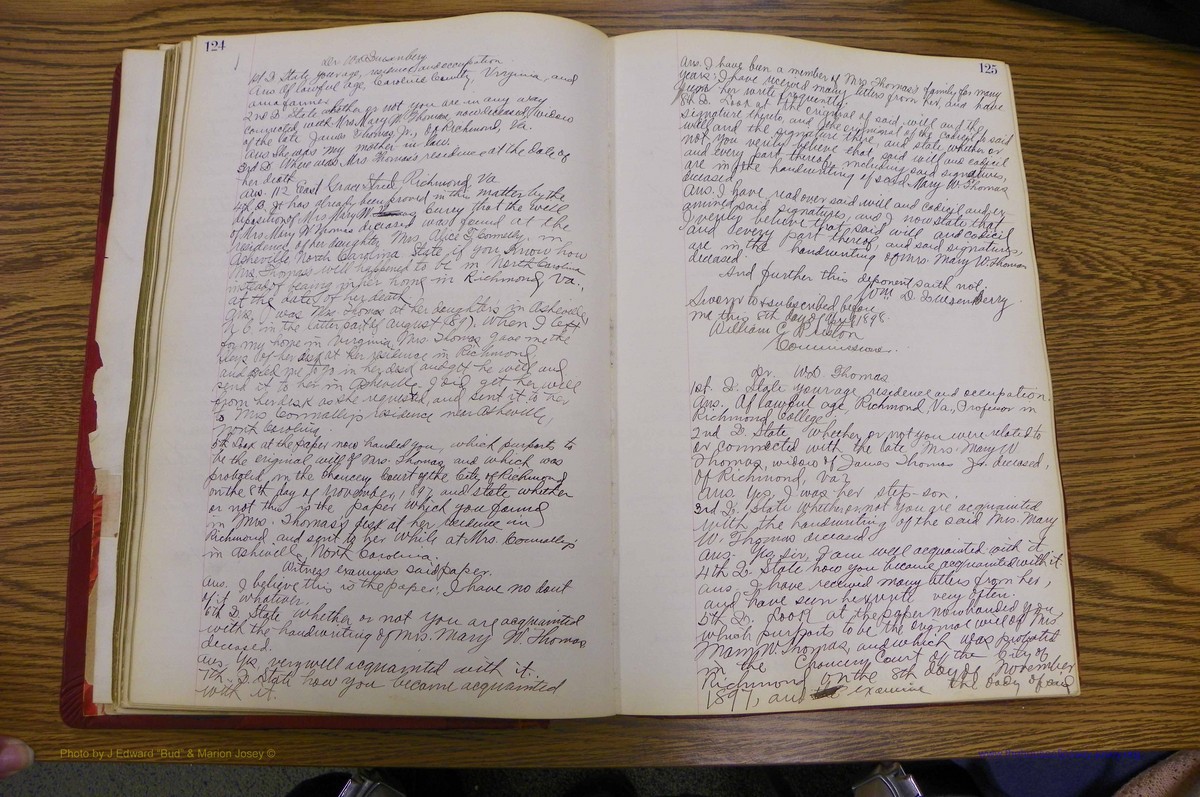 124
Dr. W.D. Quesenberry
1st Q State your age, residence and occupation
Ans Of lawful age, Caroline County, Virginia, and
am a farmer
2nd Q. State whether or not you are in any way
connected with Mrs. Mary W. Thomas, now deceased, widow
of the late James Thomas Jr., of Richmond, Va.
Ans She was my mother in law.
3rd Q. Where was Mrs Thomas's residence at the date of
her death
Ans. 112 East Grace Street, Richmond, Va
4th Q. It has already been proved in this matter by the
deposition of Mrs Mary W. Curry that the will
of Mrs Mary W Thomas deceased was found at the
residence of her daughter, Mrs. Alice T. Connally, in
Asheville North Carolina State if you know how
Mrs. Thomas's will happened to be in North Carolina
instead of being in her home in Richmond, Va.,
at the date of her death.
Ans. I was Mrs. Thomas at her daughter's in Asheville,
N C in the latter part of August 1897. When I left
for my home in Virginia Mrs Thomas gave me the
keys of her desk at her residence in Richmond,
and asked me to go in her desk and get her will and
send it to her in Asheville. I did get her will
from her desk as she requested, and sent it to her
to Mrs Connally's residence near Asheville,
North Carolina.
5th Q Look at the paper now handed you, which purports to
be the original will of Mrs. Thomas, and which was
probated, in the Chancery Court of the City of Richmond
on the 8th day of November, 1897 and state whether
or not this is the paper which you found
in Mrs. Thomas's desk at her residence in
Richmond and sent to her while at Mrs. Connally's
in Asheville, North Carolina.
Witness examines said paper.
Ans. I believe this is the paper, I have no dout
of it whatever.
6th Q. State whether or not you are acquainted
with the handwriting of Mrs. Mary W. Thomas
deceased.
Ans Yes, very well acquainted with it.
7th Q. State how you became acquainted
with it.
125
Ans. I have been a member of Mrs Thomas's family for many
years; I have received many letters from her, and have
seen her write frequently.
8th Q. Look at the original of said will and the
signature thereto, and the original of the codicil to said
will, and the signature there, and state whether or
not you verily believe that said will and codicil
and every part thereof, including said signatures,
are in the handwriting of said Mary W Thomas
deceased.
Ans. I have read over said will and codicil and ex-
amined said signatures, and I now state that
I verily believe that said will and codicil
and every part thereof, and said signatures,
are in the handwriting of Mrs. Mary W Thomas
deceased.
And further this deponent saith not.
Wm. D. Quesenberry.
Sworn to & subscribed before
me this 8th day of April 1898.
William C. Preston
Commissioner.
Dr. W.D. Thomas
1st. Q. State your age residence and occupation.
Ans. Of lawful age, Richmond Va., Professor in
Richmond College
2nd Q. State whether or not you were related to
or connected with the late Mrs. Mary W
Thomas, widow of James Thomas Jr. deceased,
of Richmond, Va?
Ans Yes, I was her step-son.
3rd Q. State whether or not you are acquainted
with the handwriting of the said Mrs. Mary
W. Thomas deceased
Ans. Yes sir, I am well acquainted with it.
4th Q. State how you became acquainted with it
Ans. I have received many letters from her,
and have seen her write very often.
5th Q. Look at the paper now handed you
which purports to be the original will of Mrs
Mary W Thomas, and which was probated
in the Chancery Court of the City of
Richmond on the 8th day of November
1897, and examine the body of and
Photo by J Edward "Bud" & Marion Josey ©